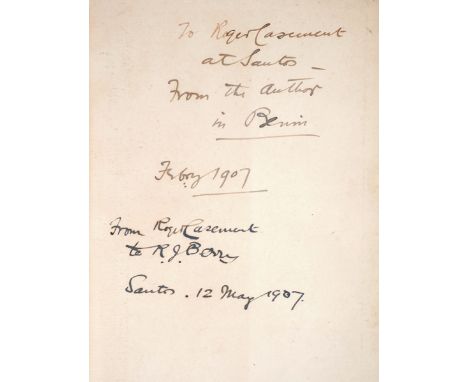 To Roger Casement
at Santos —
From the author
in Benin
Febry 1907
From Roger Casement
to R. J. Berry
Santos . 12 May 1907.